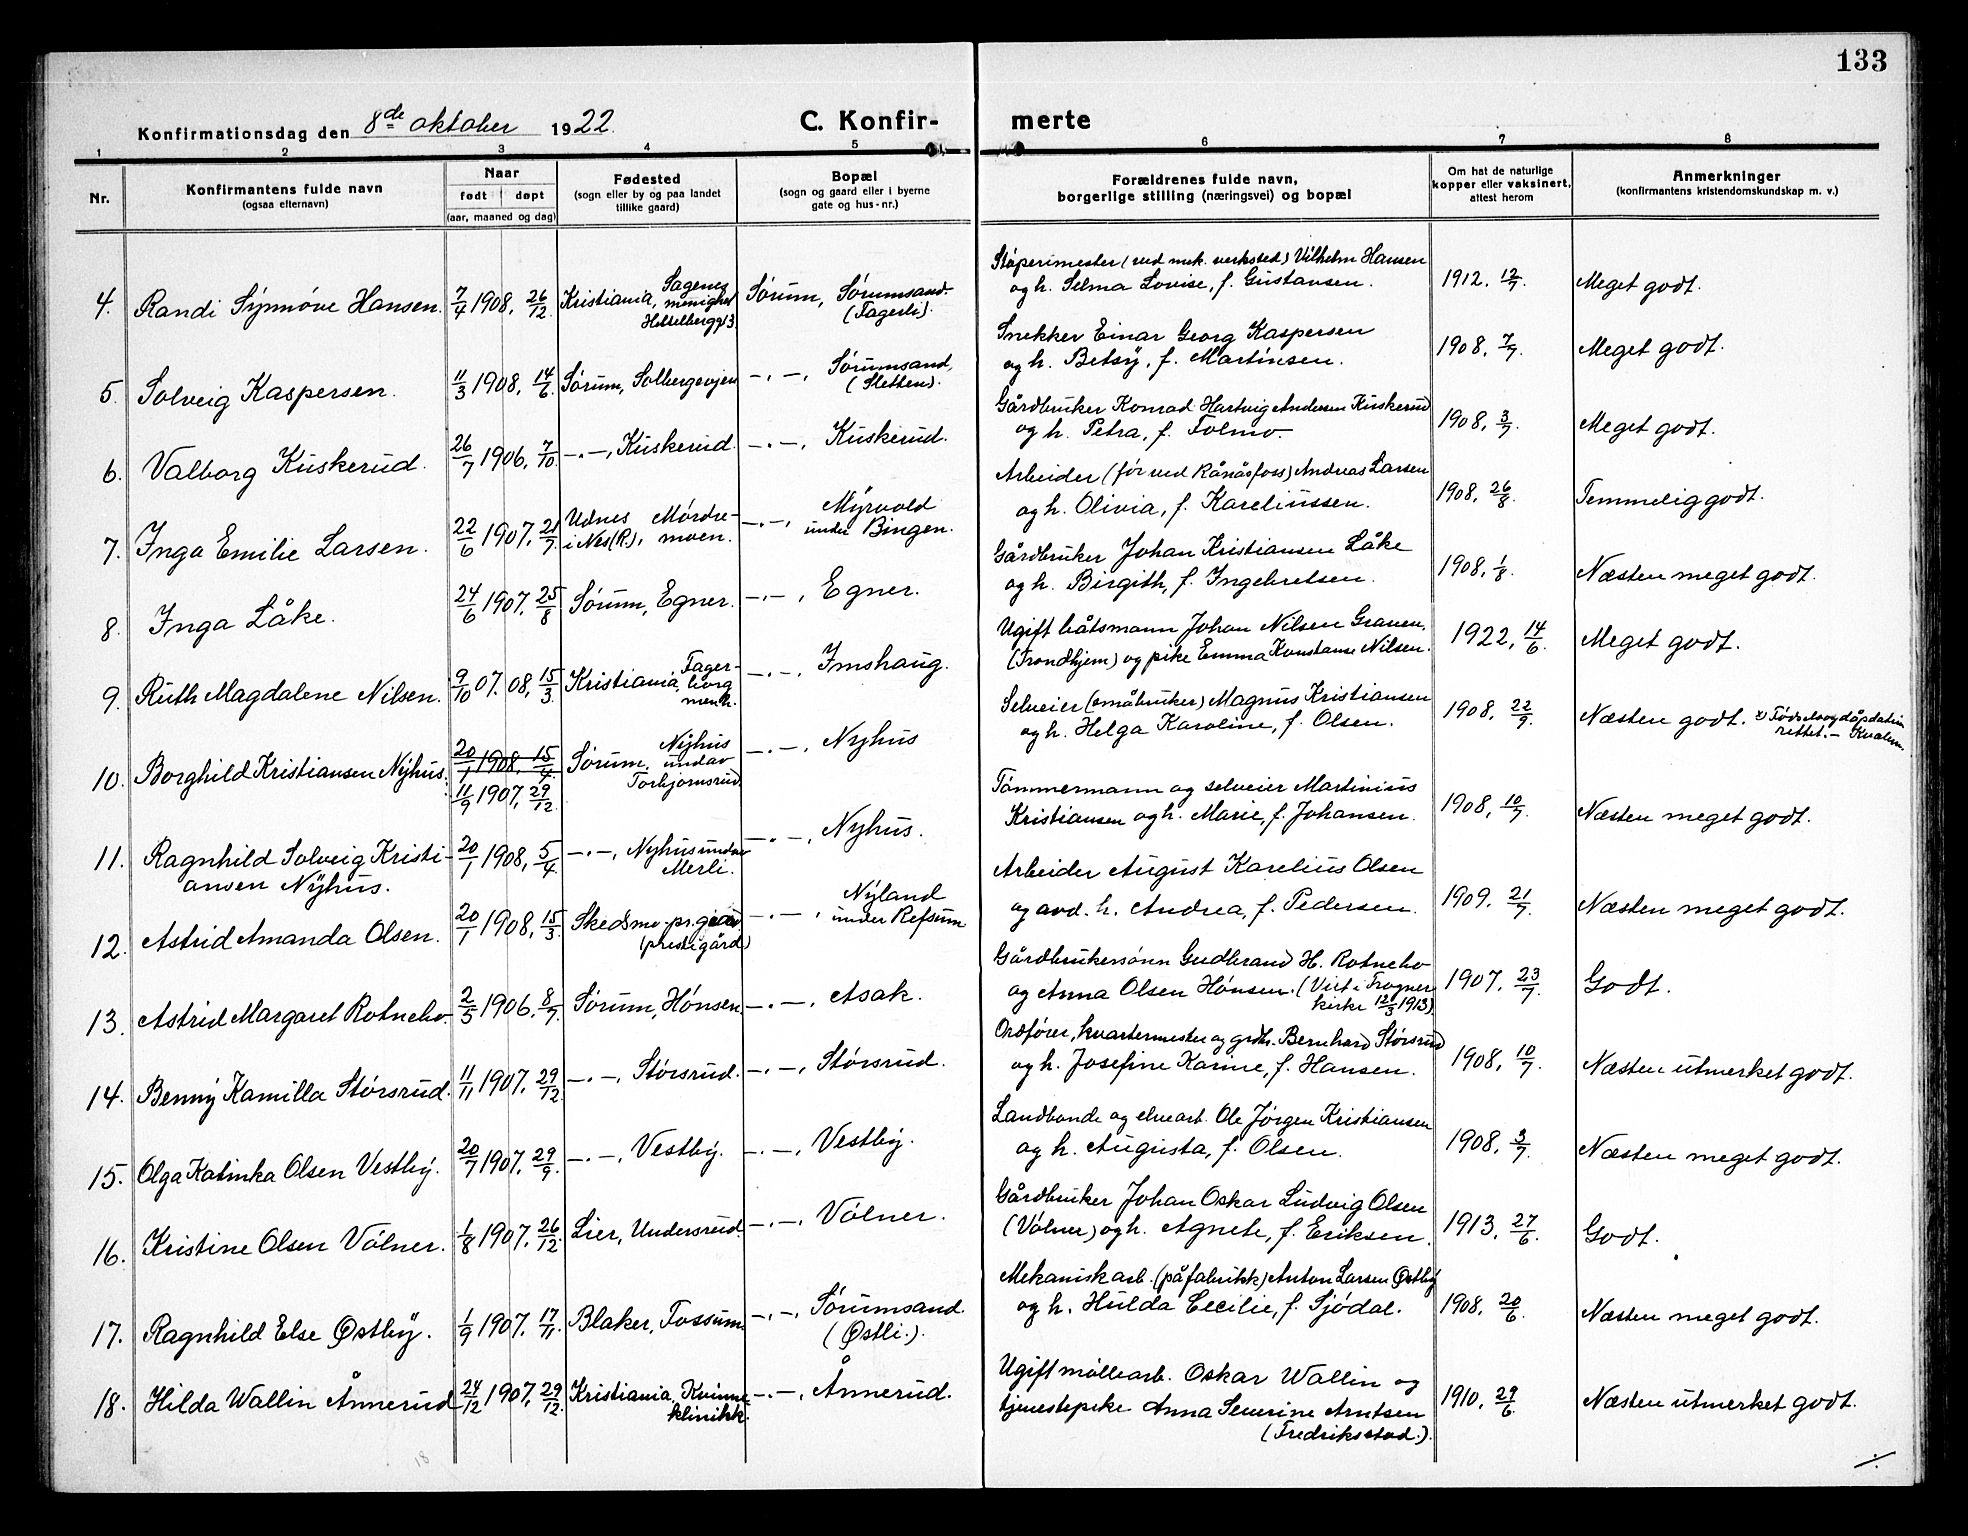 133
Konfirmationsdag den 8de oktober 1922.
C. Konfirmerte
1 2 3 4 5 6 7 8
Nr.
Konfirmantens fulde navn
(ogsaa efternavn)
Naar
født døpt
(aar, maaned og dag)
Fødested
(sogn eller by og paa landet
tillike gaard)
Bopæl
(sogn og gaard eller i byerne
gate og hus-nr.)
Forældrenes fulde navn,
borgerlige stilling (næringsvei) og bopæl
Om hat de naturlige
kopper eller vaksinert,
attest herom
Anmerkninger
(konfirmantens kristendomskundskap m. v.)
4. Randi Synnøve Hansen. 7/4 1908, 26/12 Kristiania, Sagenes menighet Sørum, Sørumsand. (Fagerli).
Støperimester (ved mek. verksted) Vilhelm Hansen
og h. Selma Lovise, f. Gustansen. 1912, 12/7. Meget godt.
5. Solveig Kaspersen. 11/3 1908, 14/6 Sørum, Solbergvejen —.—, Sørumsand, (Sletten).
Snekker Einar Georg Kaspersen
og h. Betsy, f. Martinsen. 1908, 7/7. Meget godt.
6. Valborg Kuskerud. 26/7 1906, 7/10 —.—, Kuskerud. —.—, Kuskerud.
Gårdbruker Konrad Hartvig Andersen Kuskerud
og h. Petra, f. Folmo. 1908, 3/7. Meget godt.
7. Inga Emilie Larsen. 22/6 1907, 21/7 Udnes i Nes (R.), Mørdremoen. —.—, Myrvold under Bingen.
Arbeider (før ved Rånåsfoss) Andreas Larsen
og h. Olivia, f. Kareliussen. 1908, 26/8. Temmelig godt.
8. Inga Låke. 24/6 1907, 25/8 Sørum, Egner. —.—, Egner.
Gårdbruker Johan Kristiansen Låke
og h. Birgith, f. Ingebretsen. 1908, 1/8. Næsten meget godt.
9. Ruth Magdalene Nilsen. 9/10 07. 08, 15/3 Kristiania, Fagerborg menh. —.—, Imshaug.
Ugift båtsmann Johan Nilsen Graven,
(Trondhjem) og pike Emma Konstanse Nilsen. 1922, 14/6. Meget godt.
10. Borghild Kristiansen Nyhus. 20/1 1908, 15/4 11/9 1907, 29/12 Sørum, Nyhus undav Torbjørnsrud. —.—, Nyhus
Selveier (småbruker) Magnus Kristiansen
og h. Helga Karoline, f. Olsen. 1908, 22/9. Næsten godt. x) Fødsels og dåpsdatum rettet. – Kvalem.
11. Ragnhild Solveig Kristiansen Nyhus. 20/1 1908, 5/4 —.—, Nyhus undav Merli. —.—, Nyhus.
Tømmermann og selveier Martinius
Kristiansen og h. Marie, f. Johansen. 1908, 10/7. Næsten meget godt.
12. Astrid Amanda Olsen. 20/1 1908, 15/3 Skedsmo pr.gård (prestigård) —.—, Nyland under Refsum
Arbeider August Karelius Olsen
og avd. h. Andrea, f. Pedersen. 1909. 21/7 Næsten meget godt.
13. Astrid Margaret Rotnebo. 2/5 1906, 8/7 Sørum, Hønsen —.—, Asak.
Gårdbrukersønn Gudbrand H. Rotnebo
og Anna Olsen Hønsen. (Viet i Frogner
kirke 12/3 1913). 1907, 23/7. Godt.
14. Benny Kamilla Størsrud. 11/11 1907, 29/12 —.—, Størsrud. —.—, Størsrud.
Ordfører, kvartermester og grdbr. Bernhard Størsrud
og h. Josefine Karine, f. Hansen. 1908, 10/7. Næsten utmerket godt.
15. Olga Katinka Olsen Vestby. 20/7 1907, 29/9. —.—, Vestby. —.—, Vestby.
Landbonde og elvearb. Ole Jørgen Kristiansen
og h. Augusta, f. Olsen. 1908, 3/7. Næsten meget godt.
16. Kristine Olsen Vølner. 1/8 1907, 26/12. Lier, Undersrud. —.—, Vølner.
Gårdbruker Johan Oskar Ludvig Olsen
(Vølner) og h. Agnete, f. Eriksen. 1913, 27/6. Godt.
17. Ragnhild Else Østby. 1/9 1907, 17/11. Blaker, Fossum. —.—, Sørumsand. (Østli.).
Mekanisk arb. (på fabrikk) Anton Larsen Østby
og h. Hulda Cecilie, f. Sjødal. 1908, 20/6. Næsten meget godt.
18. Hilda Wallin Ånnerud 24/12 1907, 29/12. Kristiania, Kvinneklinikk. —.—, Ånnerud.
Ugift møllearb. Oskar Wallin og
tjenestepike Anna Severine Arntsen
(Fredriksstad.). 1910, 29/6. Næsten utmerket godt.
18